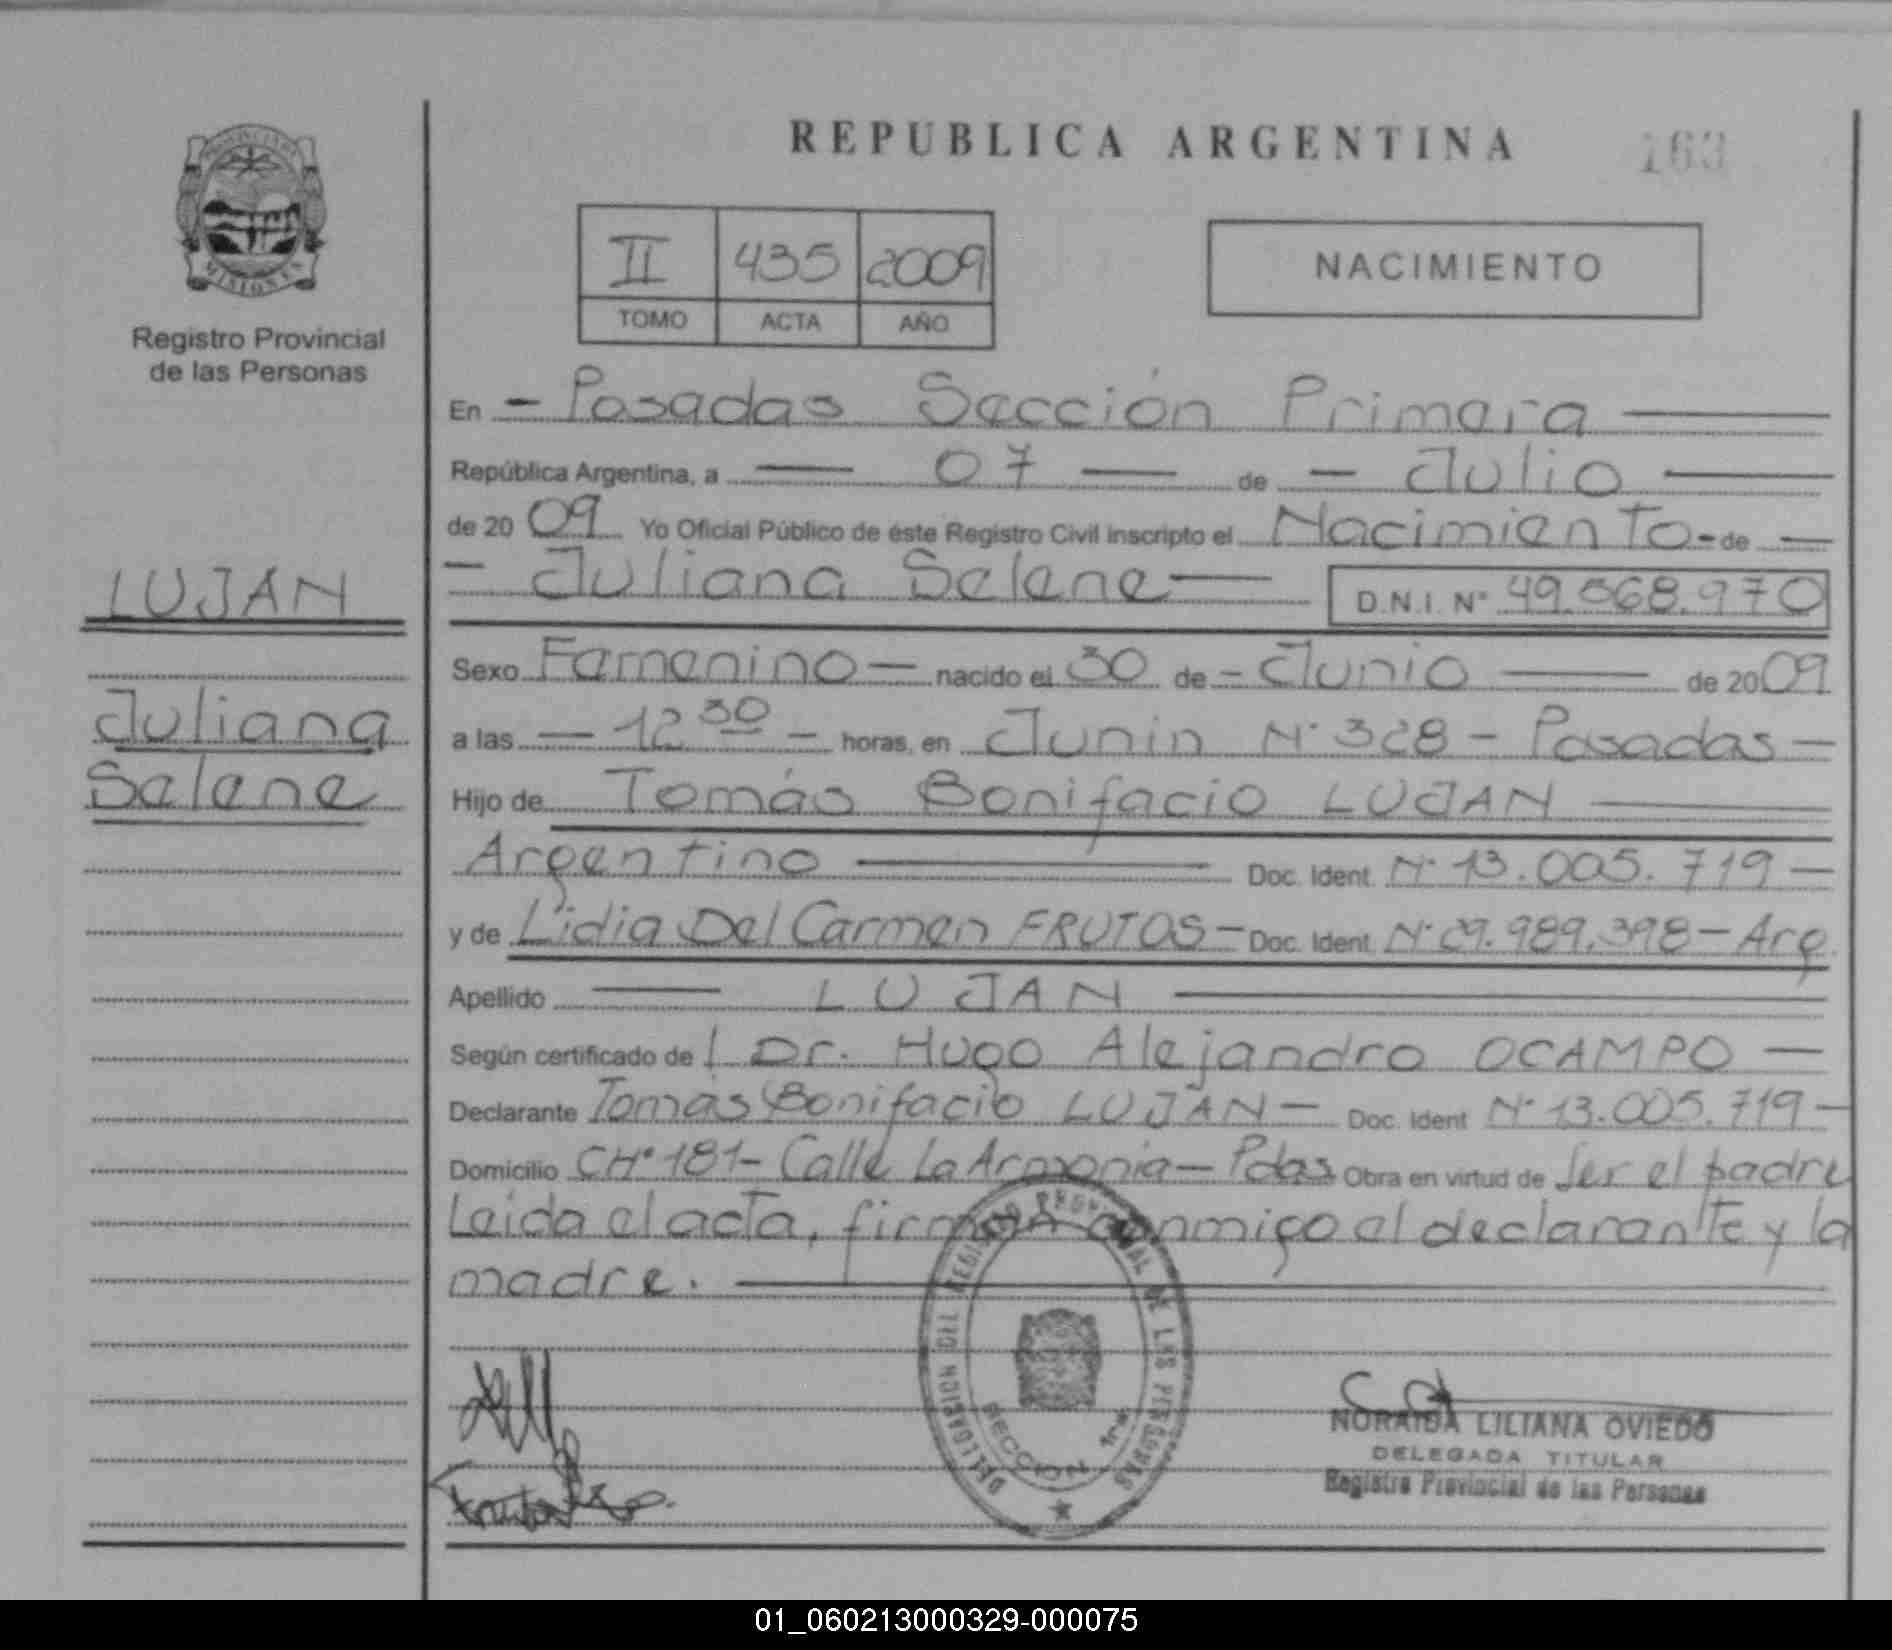 REPUBLICA ARGENTINA
163
MISIONES
Registro Provincial
de las Personas
II 435 2009
TOMO ACTA AÑO
NACIMIENTO
LUJAN
Juliana
Selene
En - Posadas Sección Primera
República Argentina, a 07 de - Julio
de 2009 Yo Oficial Público de éste Registro Civil inscripto el Nacimiento - de -
- Juliana Selene - D.N.I. N° 49.568.970
Sexo Femenino - nacido el 30 de - Junio de 2009
a las - 12 30 - horas, en Junin N° 328 - Posadas -
Hijo de Tomás Bonifacio LUJAN
Argentino Doc. Ident. N° 13.005.719 -
y de Lidia Del Carmen FRUTOS - Doc. Ident. N° 29.989.398 - Arg.
Apellido LUJAN
Según certificado de Dr. Hugo Alejandro OCAMPO -
Declarante Tomás Bonifacio LUJAN - Doc. Ident N° 13.005.719 -
Domicilio CH° 181 - Calle La Armonia - Pdas Obra en virtud de Ser el padre
Leida el acta, firman conmigo el declarante y la
madre.
DELEGACION DEL REGISTRO PROVINCIAL DE LAS PERSONAS
SECCION 1ra
NORAIDA LILIANA OVIEDO
DELEGADA TITULAR
Registro Provincial de las Personas
01_060213000329-000075